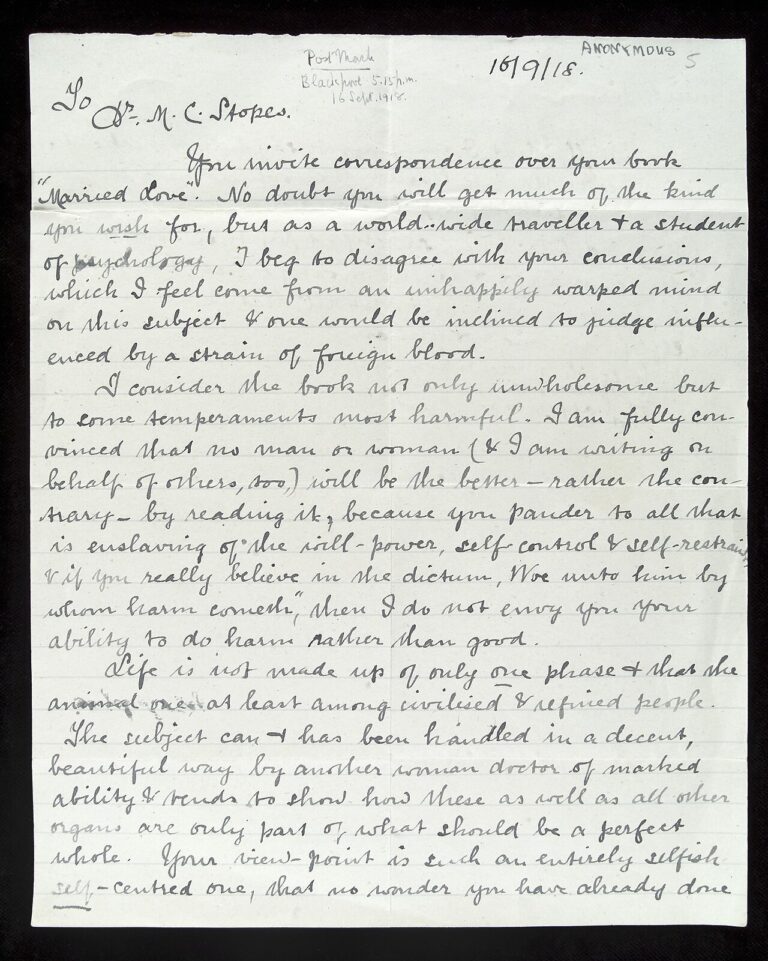 ANONYMOUS 5
Post Mark
Blackpool 5.15 p.m.
16 Sept. 1918.
16/9/18.
To
Dr. M. C. Stopes.
You invite correspondence over your book
"Married Love". No doubt you will get much of the kind
you wish for, but as a world-wide traveller & a student
of psychology, I beg to disagree with your conclusions,
which I feel come from an unhappily warped mind
on this subject & one would be inclined to judge influ-
enced by a strain of foreign blood.
I consider the book not only unwholesome but
to some temperaments most harmful. I am fully con-
vinced that no man or woman (& I am writing on
behalf of others, too,) will be the better – rather the con-
trary – by reading it, because you pander to all that
is enslaving of the will-power, self control & self-restraint,
& if you really believe in the dictum, Woe unto him by
whom harm cometh", then I do not envy you your
ability to do harm rather than good.
Life is not made up of only one phase & that the
animal one at least among civilised & refined people.
The subject can & has been handled in a decent,
beautiful way by another woman doctor of marked
ability & tends to show how these as well as all other
organs are only part of what should be a perfect
whole. Your view-point is such an entirely selfish
self-centred one, that no wonder you have already done